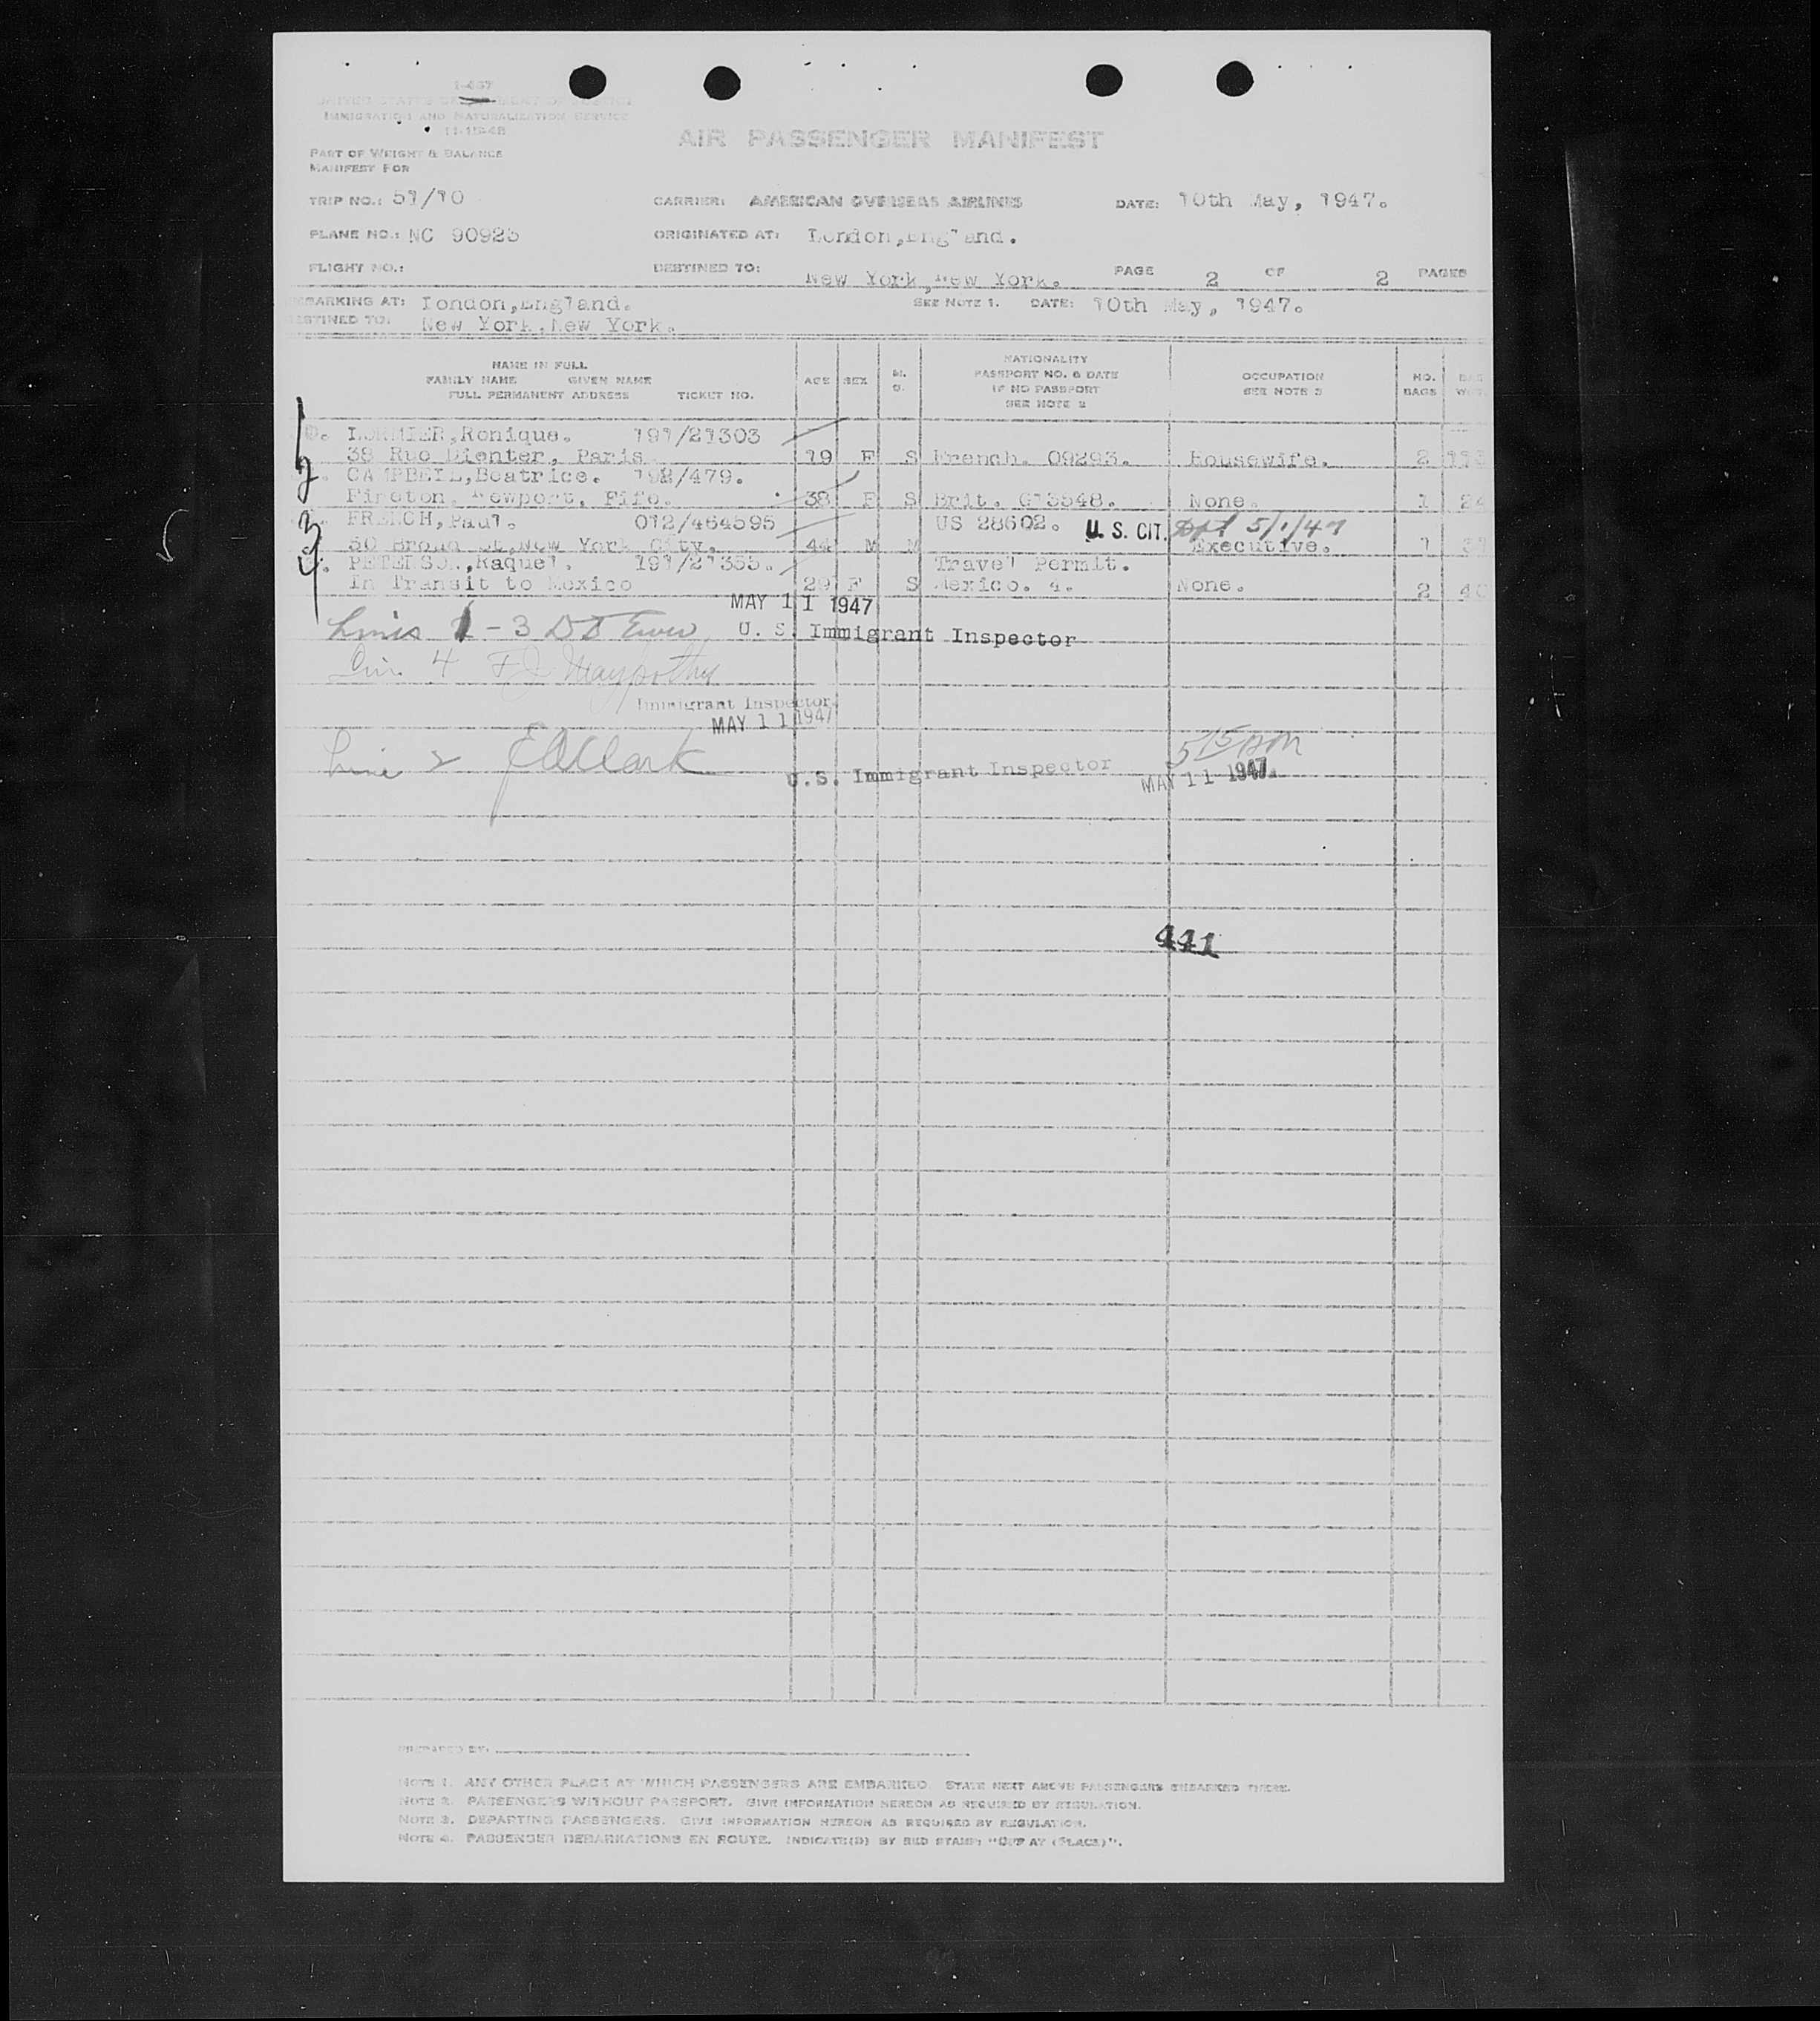 I-467
UNITED STATES DEPARTMENT OF JUSTICE
IMMIGRATION AND NATURALIZATION SERVICE
AIR PASSENGER MANIFEST
PART OF WEIGHT & BALANCE
MANIFEST FOR
TRIP NO.: 51/10 CARRIER: AMERICAN OVERSEAS AIRLINES DATE: 10th May, 1947.
PLANE NO.: NC 90923 ORIGINATED AT: London,England.
FLIGHT NO.: DESTINED TO: New York,New York. PAGE 2 OF 2 PAGES
EMBARKING AT: London,England. SEE NOTE 1. DATE: 10th May, 1947.
DESTINED TO: New York,New York.
NAME IN FULL
FAMILY NAME GIVEN NAME
FULL PERMANENT ADDRESS TICKET NO.
AGE SEX M. S.
NATIONALITY
PASSPORT NO. & DATE
IF NO PASSPORT
SEE NOTE 2
OCCUPATION
SEE NOTE 3
NO.
BAGS
1 Ronique. 191/21303
38 Rue Paris 19 F S French. 09293. Housewife. 2
2 CAMPBELL,Beatrice. 192/479.
Newport, Fife. 38 F S Brit. G13548. None. 1 24
3 FRENCH,Paul. 012/464595 US 28602. U. S. CIT. 5/1/47
50 Broad St,New York City. 44 M M Executive. 1
4 PETERSON,Raquel. 191/21355. Travel Permit.
In Transit to Mexico 29 F S Mexico. 4. None. 2
MAY 11 1947
Lines 1-3 U. S. Immigrant Inspector
Line 4
Immigrant Inspector
MAY 11 1947
Line 2 Clark U.S. Immigrant Inspector 5 15 pm
MAY 11 1947
441
PREPARED BY:
NOTE 1. ANY OTHER PLACE AT WHICH PASSENGERS ARE EMBARKED. STATE NEXT ABOVE PASSENGERS EMBARKED THERE.
NOTE 2. PASSENGERS WITHOUT PASSPORT. GIVE INFORMATION HEREON AS REQUIRED BY REGULATION.
NOTE 3. DEPARTING PASSENGERS. GIVE INFORMATION HEREON AS REQUIRED BY REGULATION.
NOTE 4. PASSENGER DEBARKATIONS EN ROUTE. INDICATE(D) BY RED STAMP: "OFF AT (PLACE)".